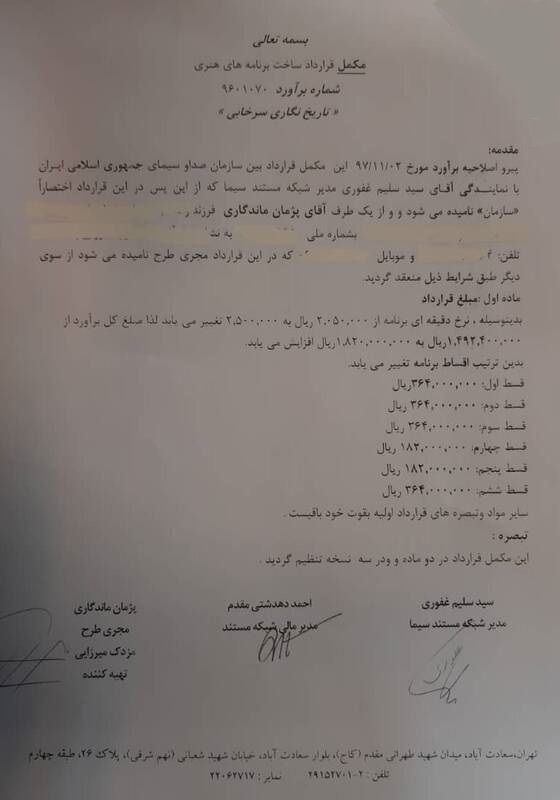 بسمه تعالی
مکمل قرارداد ساخت برنامه های هنری
شماره برآورد ۹۶۰۱۰۷۰
« تاریخ نگاری سرخابی »
مقدمه:
پیرو اصلاحیه برآورد مورخ ۹۷/۱۱/۰۲ این مکمل قرارداد بین سازمان صداو سیمای جمهوری اسلامی ایران
با نمایندگی آقای سید سلیم غفوری مدیر شبکه مستند سیما که از این پس در این قرارداد اختصاراً
«سازمان» نامیده می شود و و از یک طرف آقای پژمان ماندگاری فرزند
بشماره ملی به
تلفن: و موبایل که در این قرارداد مجری طرح نامیده می شود از سوی
دیگر طبق شرایط ذیل منعقد گردید.
ماده اول :مبلغ قرارداد
بدینوسیله ، نرخ دقیقه ای برنامه از ۲،۰۵۰،۰۰۰ ریال به ۲،۵۰۰،۰۰۰ تغییر می یابد لذا مبلغ کل برآورد از
۱،۴۹۲،۴۰۰،۰۰۰ریال به ۱،۸۲۰،۰۰۰،۰۰۰ریال افزایش می یابد.
بدین ترتیب اقساط برنامه تغییر می یابد.
قسط اول: ۳۶۴،۰۰۰،۰۰۰ریال
قسط دوم: ۳۶۴،۰۰۰،۰۰۰ ریال
قسط سوم: ۳۶۴،۰۰۰،۰۰۰ ریال
قسط چهارم: ۱۸۲،۰۰۰،۰۰۰ ریال
قسط پنجم: ۱۸۲،۰۰۰،۰۰۰ ریال
قسط ششم: ۳۶۴،۰۰۰،۰۰۰ ریال
سایر مواد وتبصره های قرارداد اولیه بقوت خود باقیست .
تبصره :
این مکمل قرارداد در دو ماده و ودر سه نسخه تنظیم گردید .
سید سلیم غفوری
مدیر شبکه مستند سیما
احمد دهدشتی مقدم
مدیر مالی شبکه مستند
پژمان ماندگاری
مجری طرح
مزدک میرزایی
تهیه کننده
تهران،سعادت آباد، میدان شهید طهرانی مقدم (کاج)، بلوار سعادت آباد، خیابان شهید شعبانی (نهم شرقی)، پلاک ۲۶، طبقه چهارم
تلفن : ۲-۲۹۱۵۲۷۰۱ نمابر : ۲۲۰۶۲۷۱۷